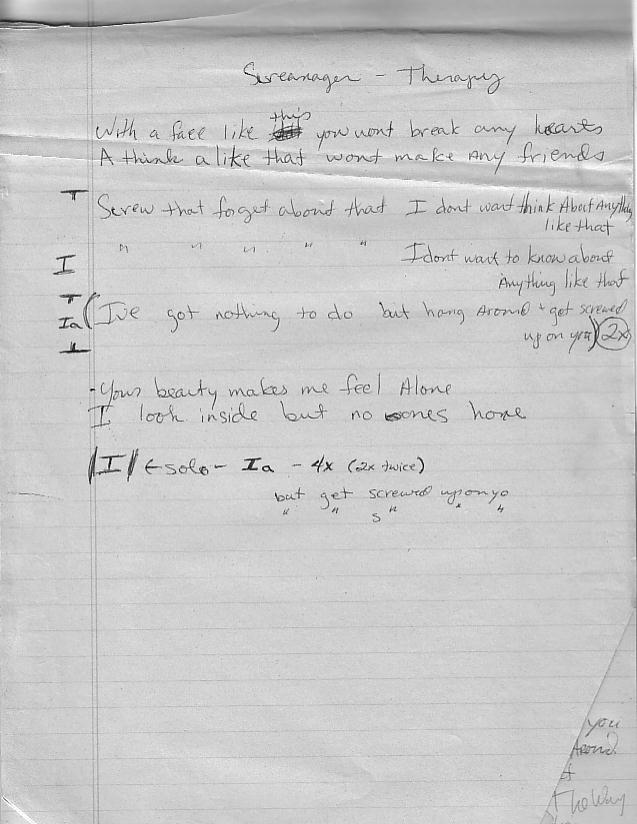 Screamager - Therapy
this
With a face like you wont break any hearts
A think a like that wont make any friends
Screw that forget abond that I dont want think About Anything
like that
" " " " " I dont want to know about
I Anything like that
Ia (Ive got nothing to do but hang Around + get screwed
up on you) 2x
- Your beauty makes me feel Alone
I look inside but no ones home
|I| ← solo - Ia - 4x (2x twice)
but get screwed up on yo
" " s " " "
you
Around
of
The Way